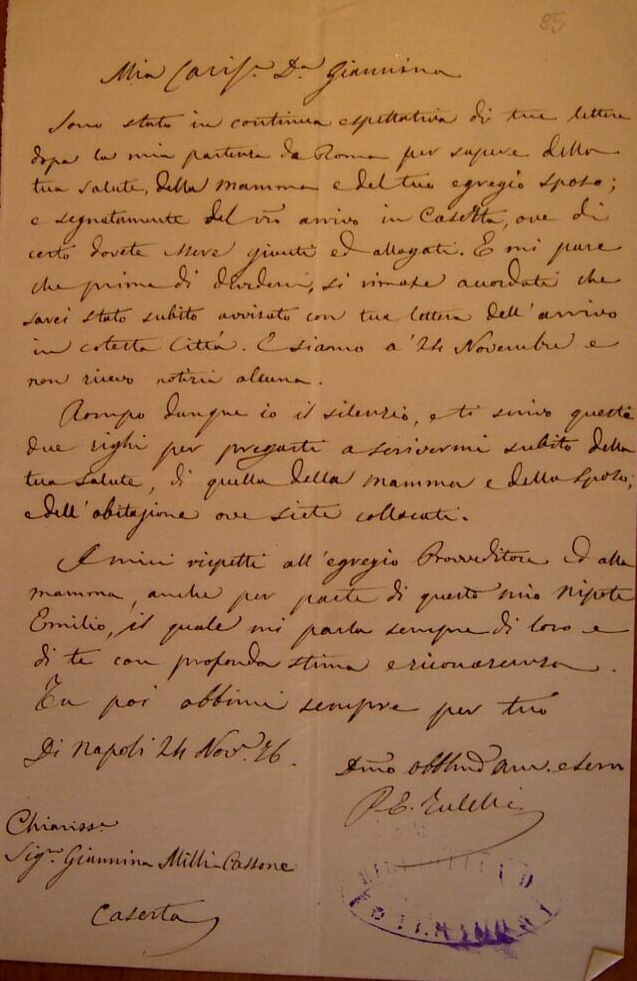 85
Mia Cariss.ª D.ª Giannina
Sono stato in continua espettativa di tue lettere
dopo la mia partenza da Roma per sapere della
tua salute, della mamma e del tuo egregio sposo;
e segnatamente del vro arrivo in Caserta, ove di
certo dovete essere giunti ed allogati. E mi pare
che prima di dividerci, si rimase accordati che
sarei stato subito avvisato con tua lettera dell'arrivo
in cotesta Città. E siamo a' 24 Novembre e
non ricevo notizia alcuna.
Rompo dunque io il silenzio, e ti scrivo questi
due righi per pregarti a scrivermi subito della
tua salute, di quella della mamma e dello sposo;
e dell'abitazione ove siete collocati.
I miei rispetti all'egregio Provveditore ed alla
mamma, anche per parte di questo mio nipote
Emilio, il quale mi parla sempre di loro e
di te con profonda stima e riconoscenza.
Tu poi abbimi sempre per tuo
Di Napoli 24 Nov.e 76.
Dmo obblmo am. e serv
P. E. Tulelli
Chiariss.ª
Sig.ª Giannina Milli-Cassone
Caserta